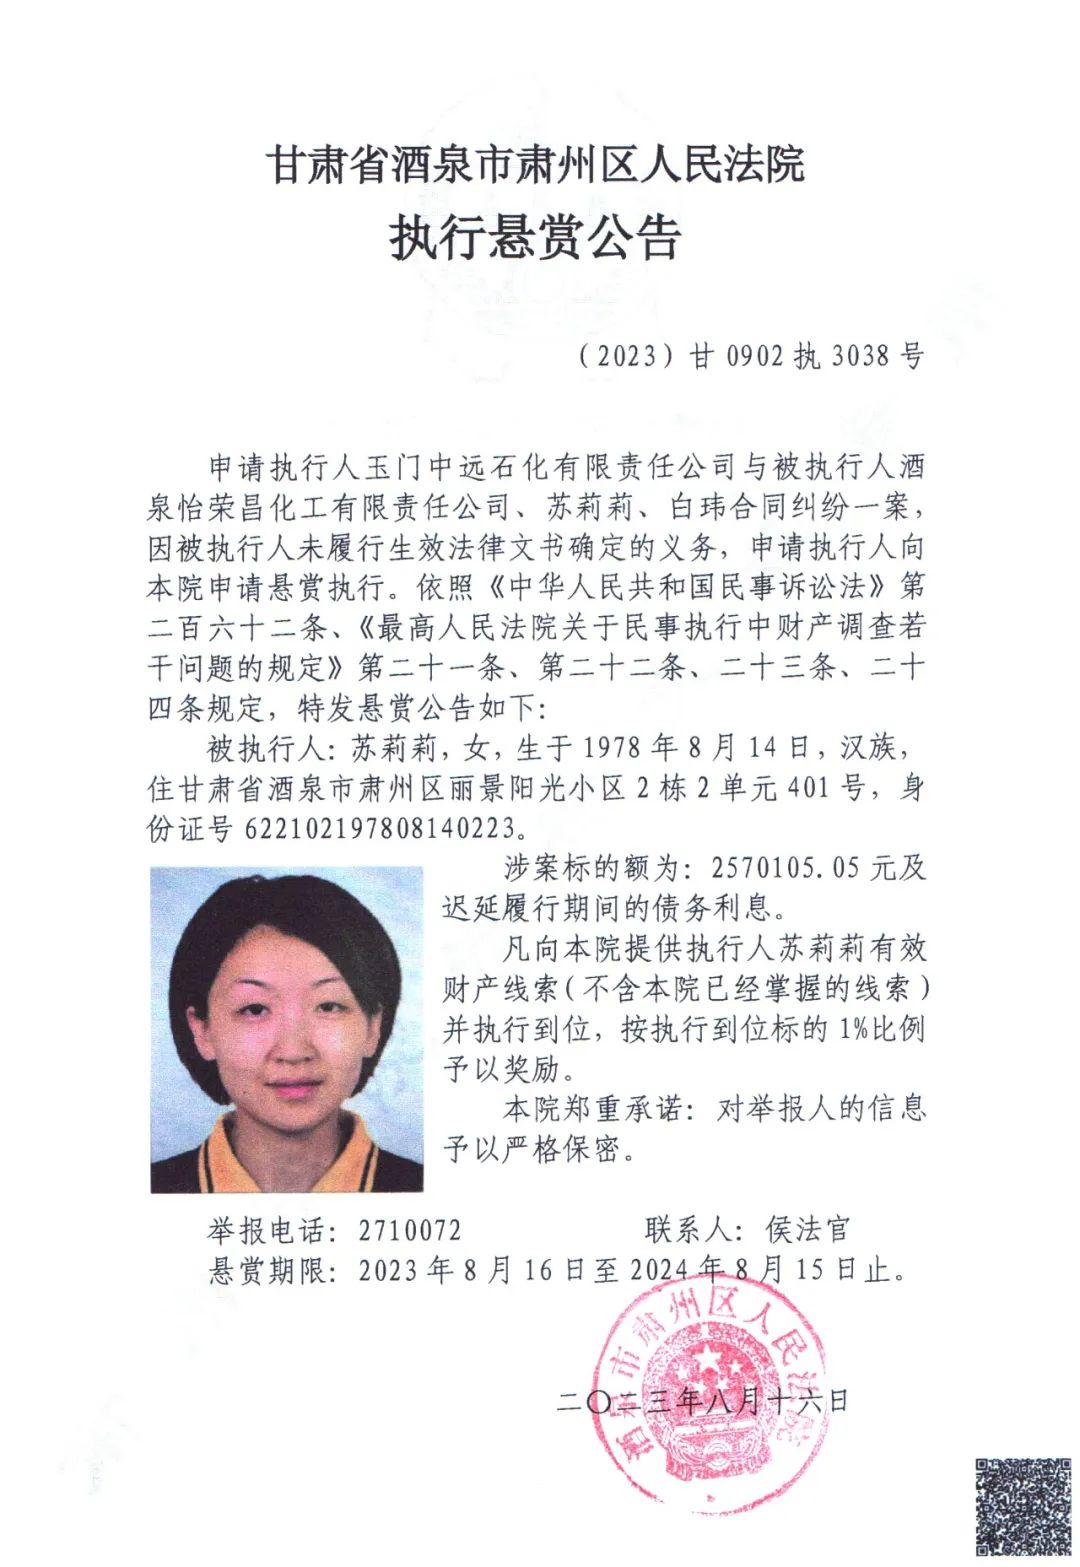 甘肃省酒泉市肃州区人民法院
执行悬赏公告
（2023）甘 0902 执 3038 号
申请执行人玉门中远石化有限责任公司与被执行人酒
泉怡荣昌化工有限责任公司、苏莉莉、白玮合同纠纷一案，
因被执行人未履行生效法律文书确定的义务，申请执行人向
本院申请悬赏执行。依照《中华人民共和国民事诉讼法》第
二百六十二条、《最高人民法院关于民事执行中财产调查若
干问题的规定》第二十一条、第二十二条、二十三条、二十
四条规定，特发悬赏公告如下：
被执行人：苏莉莉，女，生于 1978 年 8 月 14 日，汉族，
住甘肃省酒泉市肃州区丽景阳光小区 2 栋 2 单元 401 号，身
份证号 622102197808140223。
涉案标的额为：2570105.05 元及
迟延履行期间的债务利息。
凡向本院提供执行人苏莉莉有效
财产线索（不含本院已经掌握的线索）
并执行到位，按执行到位标的 1%比例
予以奖励。
本院郑重承诺：对举报人的信息
予以严格保密。
举报电话：2710072 联系人：侯法官
悬赏期限：2023 年 8 月 16 日至 2024 年 8 月 15 日止。
酒泉市肃州区人民法院
二〇二三年八月十六日